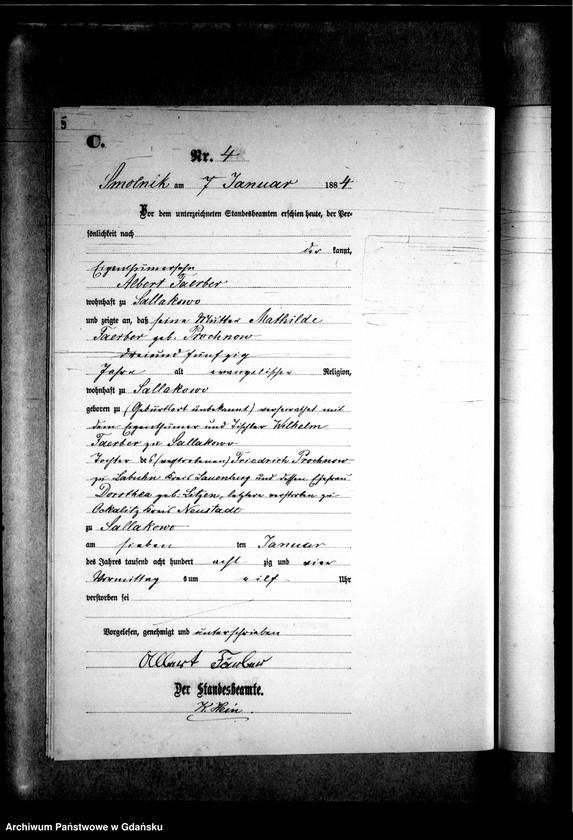 5
C.
Nr. 4
Smolnik am 7 Januar 1884
Vor dem unterzeichneten Standesbeamten erschien heute, der Per-
sönlichkeit nach
der kannt,
Eigenthümersohn
Albert Faerber
wohnhaft zu Sallakowo
und zeigte an, daß seine Mutter Mathilde
Faerber geb. Prochnow
dreiund fünf zig
Jahre alt evangelischer Religion,
wohnhaft zu Sallakowo
geboren zu (Geburtsort unbekannt) verheirathet mit
dem Eigenthümer und Tischler Wilhelm
Faerber zu Sallakowo
Tochter des (verstorbenen) Friedrich Prochnow
zu Labuhn Kreis Lauenburg und dessen Ehefrau
Dorothea geb. Litzen, letztere verstorben zu
Ockalitz Kreis Neustadt
zu Sallakowo
am sieben ten Januar
des Jahres tausend acht hundert acht zig und vier
Vormittag s um eilf Uhr
verstorben sei
Vorgelesen, genehmigt und unterschrieben
Albert Färber
Der Standesbeamte.
K. Hein.
Archiwum Państwowe w Gdańsku